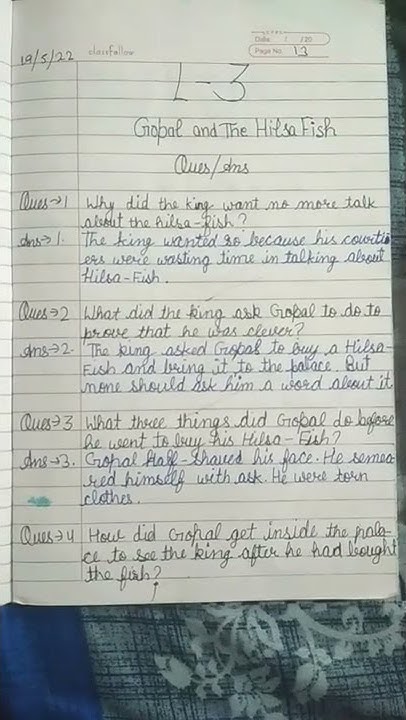 19/5/22
classfellow
Date: / /20
Page No. 13
L-3
Gopal and The Hilsa Fish
Ques/Ans
Ques→1 Why did the king want no more talk
about the hilsa-fish?
Ans→1. The king wanted so because his courti
ers were wasting time in talking about
Hilsa-Fish.
Ques→2 What did the king ask Gopal to do to
prove that he was clever?
Ans→2. The king asked Gopal to buy a Hilsa-
Fish and bring it to the palace. But
none should ask him a word about it
Ques→3 What three things did Gopal do before
he went to buy his Hilsa-Fish?
Ans→3. Gopal Half-shaved his face. He semea
red himself with ask. He were torn
clothes.
Ques→4 How did Gopal get inside the pala-
ce to see the king after he had bought
the fish?